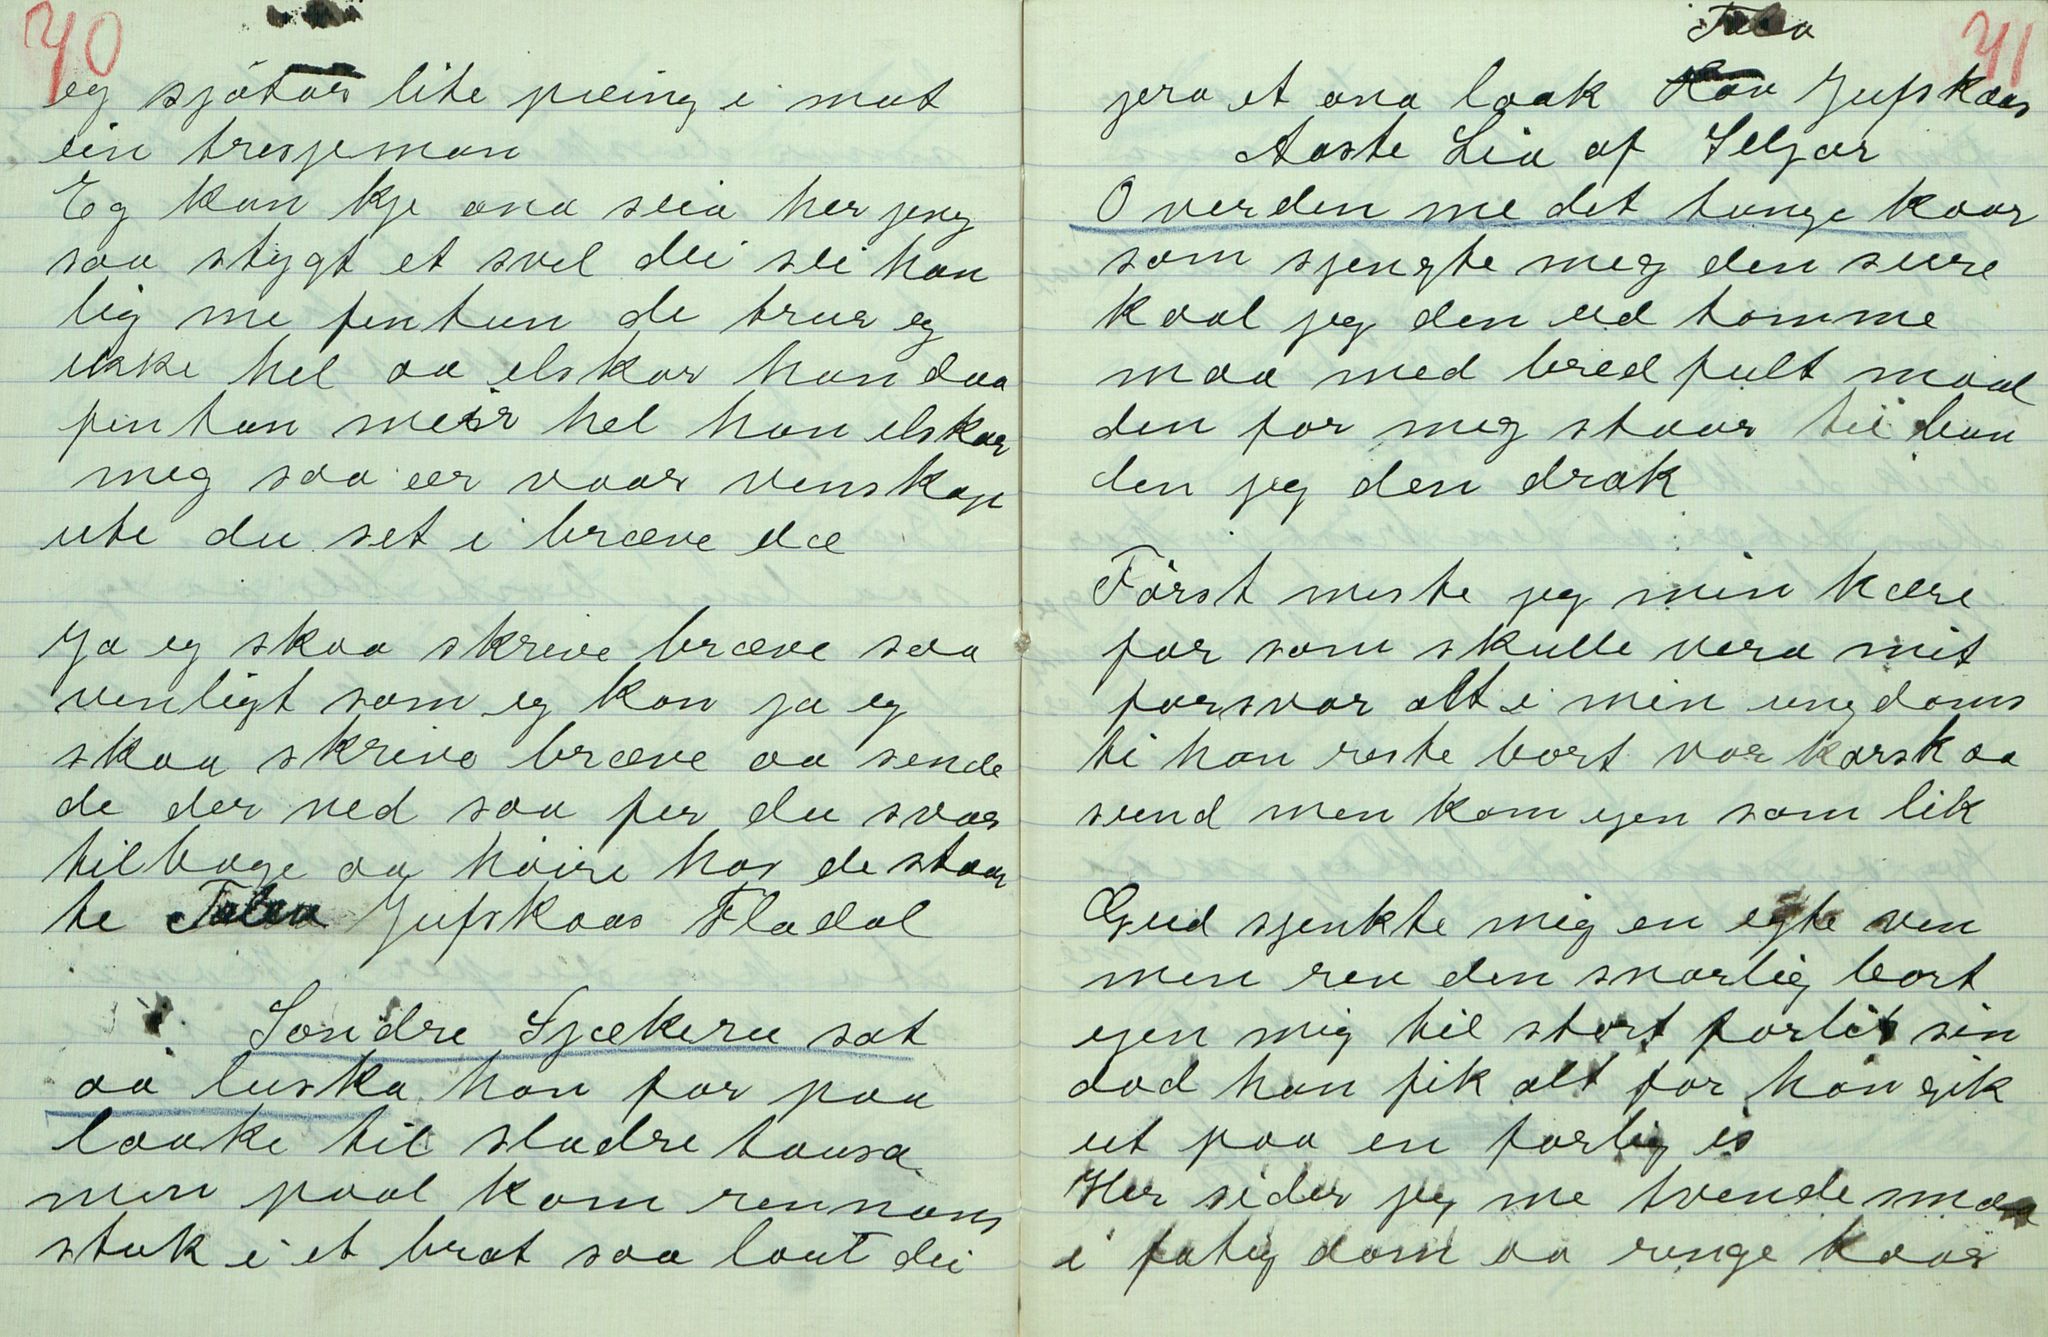 40
eg sjøtar lite pæing i mot
ein tresjeman
Eg kan kje ana seia her jeng
saa stygt et svel dei sei han
lig me fentun de trur eg
ikke hel aa elskar han daa
fentan meir hel han elskar
meg saa er vaar venskap
ute du set i bræve dæ
Ja eg skaa skrive bræve saa
venligt som eg kan ja eg
skaa skrive bræve aa sende
de der ned saa fer du svar
tilbage aa høire hos de staar
te Talea Jufskaas Fladal
Søndre Sjækeru sat
aa luska han for paa
laake til sladre tausa
men paal kom rennans
stak i et brat saa laut dei
41
Talea
jera et ana laak Jufskaas
Aaste Lia af Seljor
O verden me det tunge kaar
som sjengte meg den sure
kaal jeg den ud tømme
maa med bred fult maal
den for meg staar til bun
den jeg den drak
Først meste jeg min kære
far som skulle vera mit
forsvar alt i min ungdoms
ti han reste bort var karsk aa
sund men kom igen som lik
Gud sjenkte mig en egte ven
men rev den snarlig bort
igen mig til stort forlis sin
død han fik alt for han gik
ut paa en farlig is
Her sider jeg me tvende smaa
i fatig dom aa ringe kaar